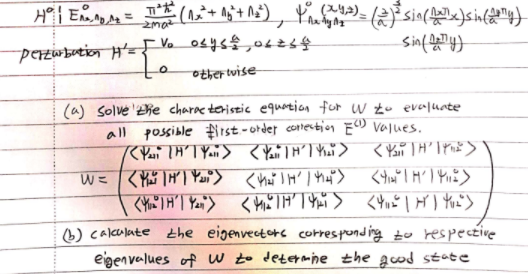 H⁰ | E⁰ₙₓ,ₙᵧ,ₙ₂ = π²ħ²/2ma² (nₓ² + nᵧ² + n₂²) , ψ⁰ₙₓₙᵧₙ₂ (x,y,z) = (2/a)^(3/2) sin(nₓπ/a x) sin(nᵧπ/a y)
sin(n₂π/a y)
perturbation H' = { V₀ 0≤y≤a/2 , 0≤z≤a/2
0 otherwise
(a) solve the characteristic equation for W to evaluate
all possible first-order correction E⁽¹⁾ values.
W = ( <ψ₂₁₁⁰ | H' | ψ₂₁₁⁰> <ψ₂₁₁⁰ | H' | ψ₁₂₁⁰> <ψ₂₁₁⁰ | H' | ψ₁₁₂⁰>
<ψ₁₂₁⁰ | H' | ψ₂₁₁⁰> <ψ₁₂₁⁰ | H' | ψ₁₂₁⁰> <ψ₁₂₁⁰ | H' | ψ₁₁₂⁰>
<ψ₁₁₂⁰ | H' | ψ₂₁₁⁰> <ψ₁₁₂⁰ | H' | ψ₁₂₁⁰> <ψ₁₁₂⁰ | H' | ψ₁₁₂⁰> )
(b) calculate the eigenvectors corresponding to respective
eigenvalues of W to determine the good state